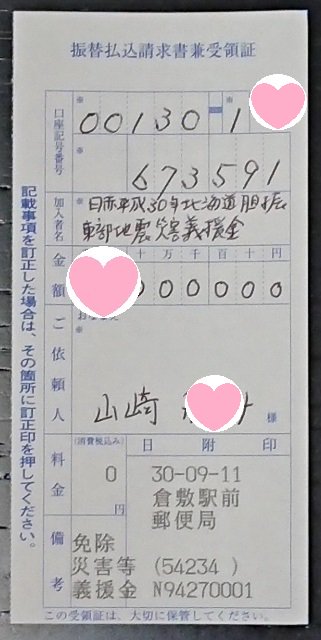 振替払込請求書兼受領証
口座記号番号
※ 00130 - ※ 1
673591
加入者名
※ 日赤平成30年北海道胆振
東部地震災害義援金
金額
十万千百十円
000000
ご依頼人
※
山崎
様
料金
(消費税込み)
0
円
日附印
30-09-11
倉敷駅前
郵便局
備考
免除
災害等 (54234 )
義援金 N94270001
記載事項を訂正した場合は、その箇所に訂正印を押してください。
この受領証は、大切に保管してください。